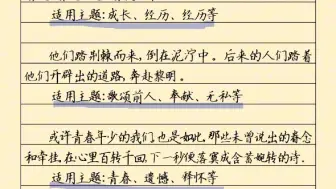 适用主题:成长、经历、经历等
他们踏荆棘而来,倒在泥泞中。后来的人们踏着
他们开辟出的道路,奔赴黎明。
适用主题:歌颂前人、奉献、无私等
或许青春年少的我们也是如此,那些未曾说出的眷恋
和牵挂,在心里百转千回,下一秒便落寞成含蓄婉转的诗.
适用主题:青春、遗憾、释怀等